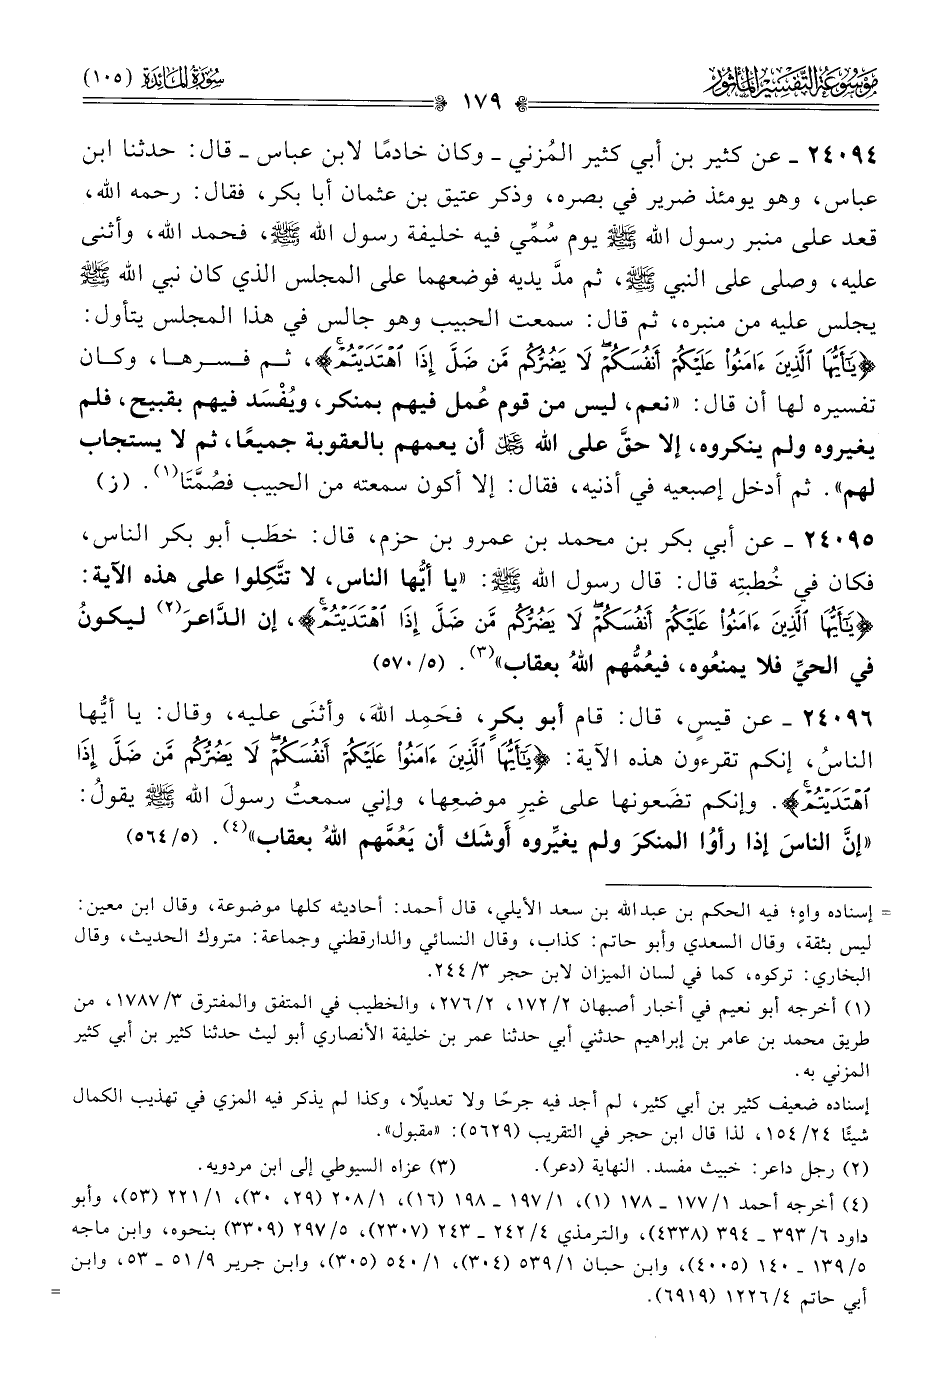 موسوعة التفسير المأثور
سورة المائدة (١٠٥)
١٧٩
٢٤٠٩٤ ـ عن كثير بن أبي كثير المُزني ـ وكان خادمًا لابن عباس ـ قال: حدثنا ابن
عباس، وهو يومئذ ضرير في بصره، وذكر عتيق بن عثمان أبا بكر، فقال: رحمه الله،
قعد على منبر رسول الله ﷺ يوم سُمِّي فيه خليفة رسول الله ﷺ، فحمد الله، وأثنى
عليه، وصلى على النبي ﷺ، ثم مدَّ يديه فوضعهما على المجلس الذي كان نبي الله ﷺ
يجلس عليه من منبره، ثم قال: سمعت الحبيب وهو جالس في هذا المجلس يتأول:
﴿يَٰٓأَيُّهَا ٱلَّذِينَ ءَامَنُواْ عَلَيْكُمْ أَنفُسَكُمْۖ لَا يَضُرُّكُم مَّن ضَلَّ إِذَا ٱهْتَدَيْتُمْۚ﴾، ثم فسرها، وكان
تفسيره لها أن قال: «نعم، ليس من قوم عُمل فيهم بمنكر، ويُفْسَد فيهم بقبيح، فلم
يغيروه ولم ينكروه، إلا حقَّ على الله ﷻ أن يعمهم بالعقوبة جميعًا، ثم لا يستجاب
لهم». ثم أدخل إصبعيه في أذنيه، فقال: إلا أكون سمعته من الحبيب فصُمَّتَا(١). (ز)
٢٤٠٩٥ ـ عن أبي بكر بن محمد بن عمرو بن حزم، قال: خطَب أبو بكر الناس،
فكان في خُطبتِه قال: قال رسول الله ﷺ: «يا أيُّها الناس، لا تتَّكلوا على هذه الآية:
﴿يَٰٓأَيُّهَا ٱلَّذِينَ ءَامَنُواْ عَلَيْكُمْ أَنفُسَكُمْۖ لَا يَضُرُّكُم مَّن ضَلَّ إِذَا ٱهْتَدَيْتُمْۚ﴾، إن الدَّاعرَ(٢) ليكونُ
في الحيِّ فلا يمنعُوه، فيعُمُّهم اللهُ بعقاب»(٣). (٥/ ٥٧٠)
٢٤٠٩٦ ـ عن قيسٍ، قال: قام أبو بكرٍ، فحَمِد اللهَ، وأثنَى عليه، وقال: يا أيُّها
الناسُ، إنكم تقرءون هذه الآية: ﴿يَٰٓأَيُّهَا ٱلَّذِينَ ءَامَنُواْ عَلَيْكُمْ أَنفُسَكُمْۖ لَا يَضُرُّكُم مَّن ضَلَّ إِذَا
ٱهْتَدَيْتُمْۚ﴾. وإنكم تضَعونها على غيرِ موضعِها، وإني سمعتُ رسولَ الله ﷺ يقولُ:
«إنَّ الناسَ إذا رأوُا المنكرَ ولم يغيِّروه أَوشَك أن يَعُمَّهم اللهُ بعقاب»(٤). (٥/ ٥٦٤)
= إسناده واهٍ؛ فيه الحكم بن عبدالله بن سعد الأيلي، قال أحمد: أحاديثه كلها موضوعة، وقال ابن معين:
ليس بثقة، وقال السعدي وأبو حاتم: كذاب، وقال النسائي والدارقطني وجماعة: متروك الحديث، وقال
البخاري: تركوه، كما في لسان الميزان لابن حجر ٣/ ٢٤٤.
(١) أخرجه أبو نعيم في أخبار أصبهان ٢/ ١٧٢، ٢/ ٢٧٦، والخطيب في المتفق والمفترق ٣/ ١٧٨٧، من
طريق محمد بن عامر بن إبراهيم حدثني أبي حدثنا عمر بن خليفة الأنصاري أبو ليث حدثنا كثير بن أبي كثير
المزني به.
إسناده ضعيف كثير بن أبي كثير، لم أجد فيه جرحًا ولا تعديلًا، وكذا لم يذكر فيه المزي في تهذيب الكمال
شيئًا ٢٤/ ١٥٤، لذا قال ابن حجر في التقريب (٥٦٢٩): «مقبول».
(٢) رجل داعر: خبيث مفسد. النهاية (دعر). (٣) عزاه السيوطي إلى ابن مردويه.
(٤) أخرجه أحمد ١/ ١٧٧ ـ ١٧٨ (١)، ١/ ١٩٧ ـ ١٩٨ (١٦)، ١/ ٢٠٨ (٢٩، ٣٠)، ١/ ٢٢١ (٥٣)، وأبو
داود ٦/ ٣٩٣ ـ ٣٩٤ (٤٣٣٨)، والترمذي ٤/ ٢٤٢ ـ ٢٤٣ (٢٣٠٧)، ٥/ ٢٩٧ (٣٣٠٩) بنحوه، وابن ماجه
٥/ ١٣٩ ـ ١٤٠ (٤٠٠٥)، وابن حبان ١/ ٥٣٩ (٣٠٤)، ١/ ٥٤٠ (٣٠٥)، وابن جرير ٩/ ٥١ ـ ٥٣، وابن
أبي حاتم ٤/ ١٢٢٦ (٦٩١٩). =